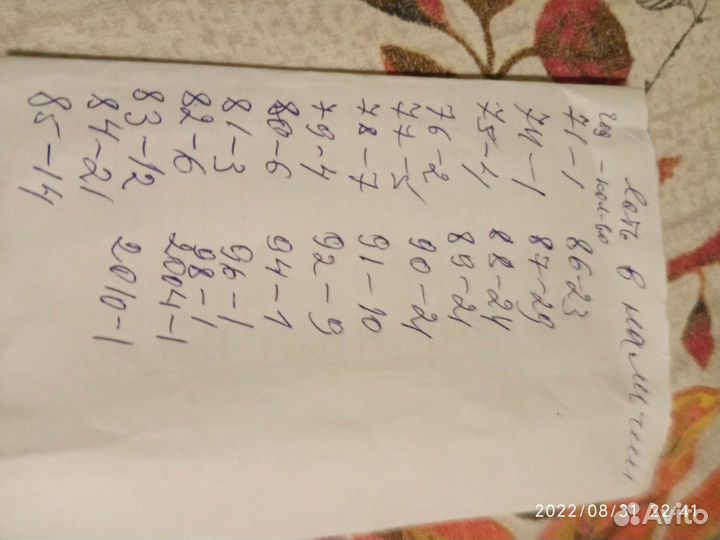 в наличии
год - кол-во
71-1 86-23
74-1 87-29
75-4 88-24
76-2 89-21
77-5 90-21
78-7 91-10
79-4 92-9
80-6 94-1
81-3 96-1
82-6 98-1
83-12 2004-1
84-21 2010-1
85-14
2022/08/31 22:41
Avito